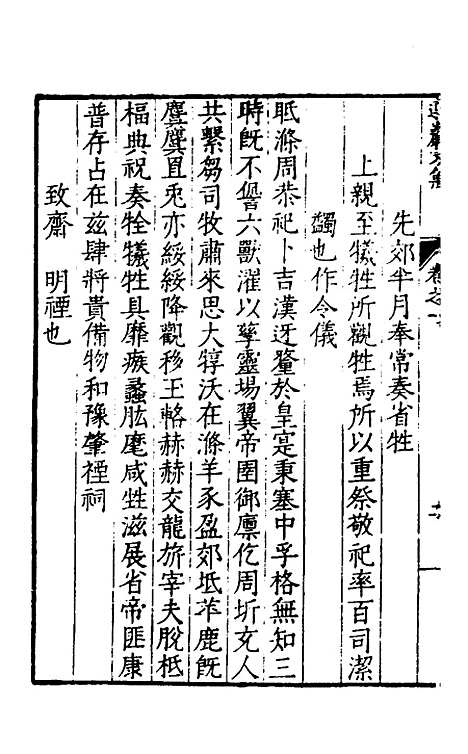 卷之一
先郊半月奉常奏省牲
上親至犧牲所觀牲焉所以重祭敬祀率百司潔
蠲也作令儀
眂滌周恭祀卜吉漢迓釐於皇寔秉塞中孚格無知三
時既不訾六獸濯以孳靈場翼帝圉御廩仡周圻充人
共繫芻司牧肅來思大犉沃在滌羊豕盈郊坻羋鹿既
麌麌直兔亦綏綏降觀移王輅赫赫交龍旂宰夫脫柢
楅典祝奏牷犧牲具靡瘯蠡肱麾咸甡滋展省帝匪康
普存占在兹肆將貴備物和豫肇禋祠
致齋　明禋也